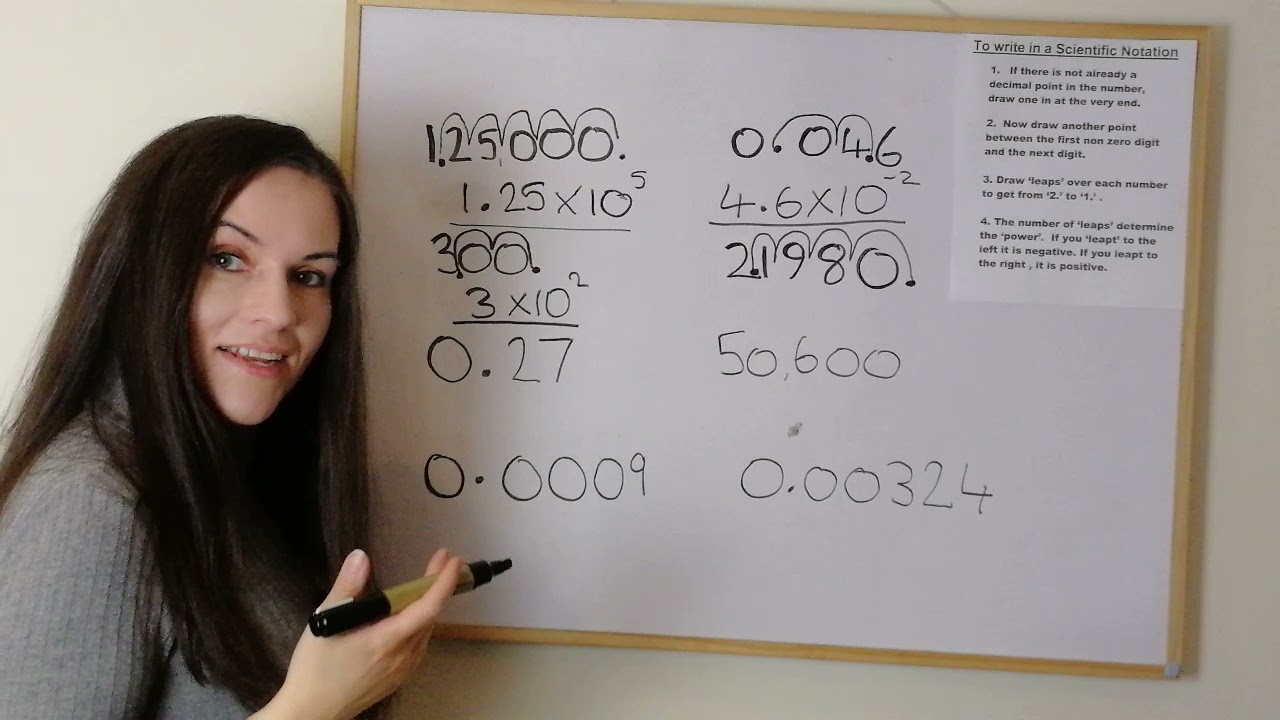 1.25,000.
1.25 x 10^5
3.00.
3 x 10^2
0.27
0.0009
0.04.6
4.6 x 10^-2
2.1980.
50,600
0.00324
To write in a Scientific Notation
1. If there is not already a
decimal point in the number,
draw one in at the very end.
2. Now draw another point
between the first non zero digit
and the next digit.
3. Draw ‘leaps’ over each number
to get from ‘2.’ to ‘1.’ .
4. The number of ‘leaps’ determine
the ‘power’. If you ‘leapt’ to the
left it is negative. If you leapt to
the right , it is positive.